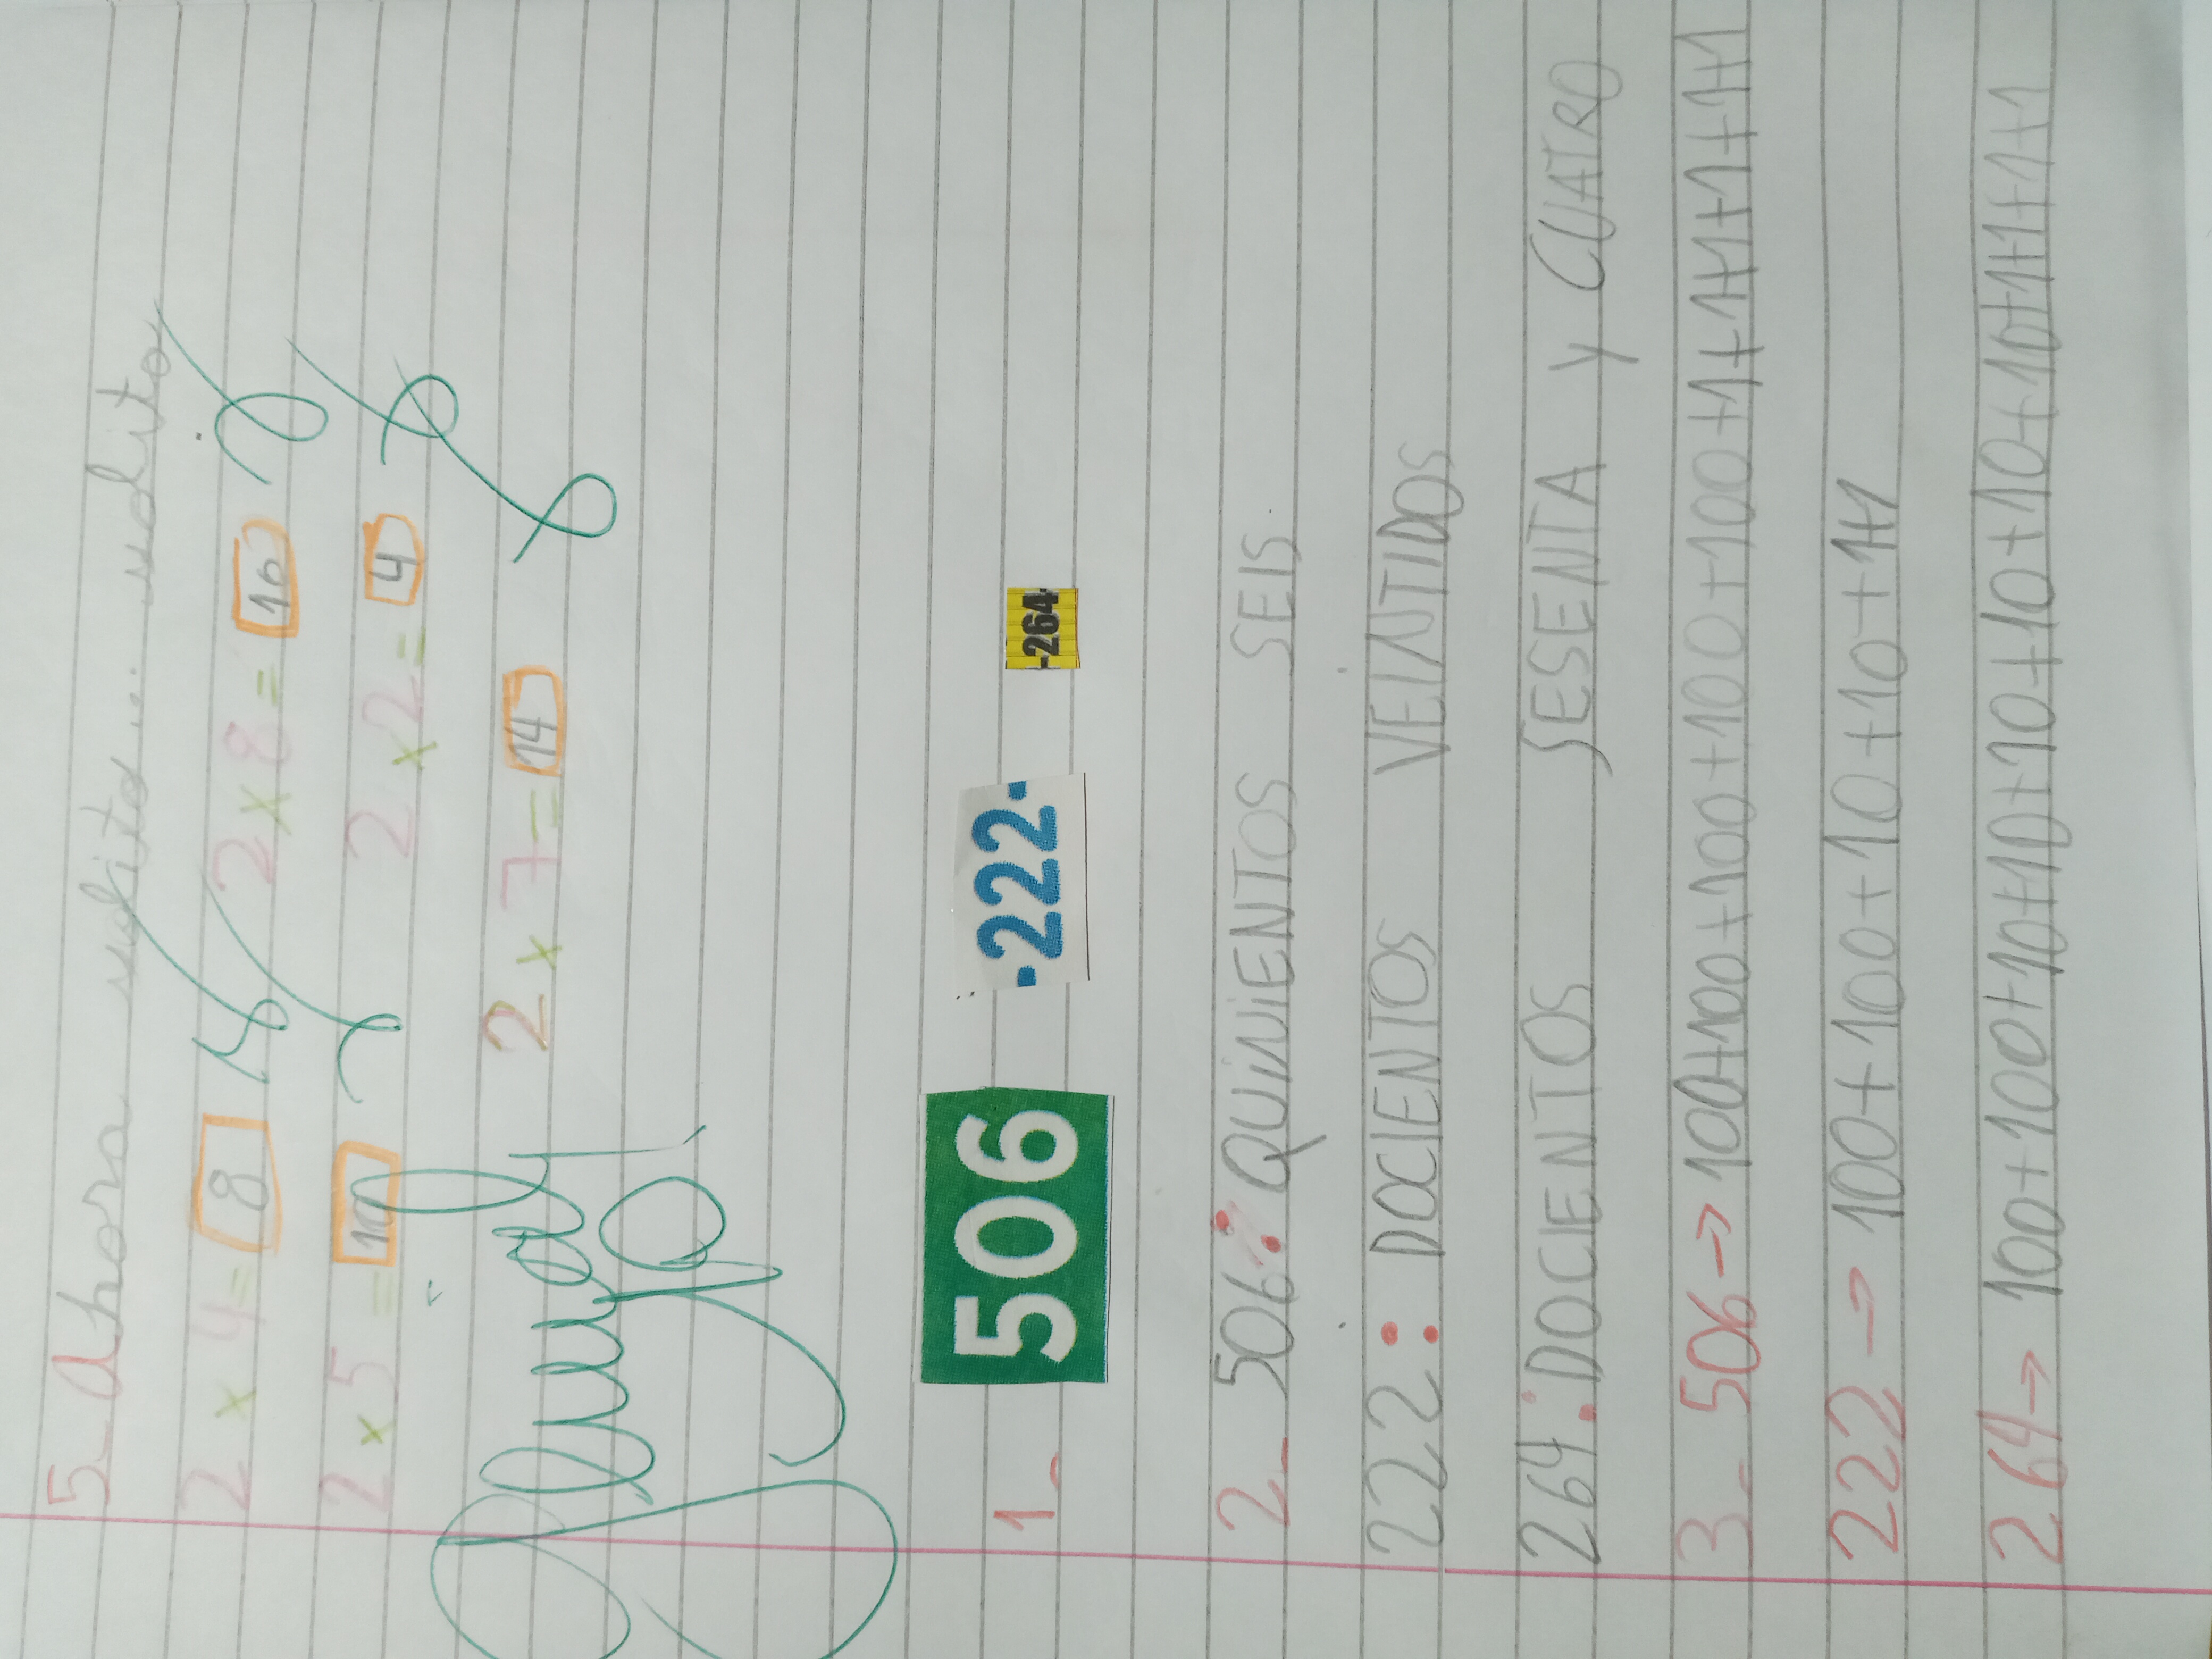 5_ Ahora solito... solito
2 x 4 = 8 2 x 8 = 16
2 x 5 = 10 2 x 2 = 4
2 x 7 = 14
1_ 506 ·222· 264
2_ 506: QUINIENTOS SEIS
222: DOCIENTOS VEINTIDOS
264: DOCIENTOS SESENTA Y CUATRO
3_ 506→ 100+100+100+100+100+1+1+1+1+1+1
222→ 100+100+10+10+1+1
264→ 100+100+10+10+10+10+10+10+1+1+1+1